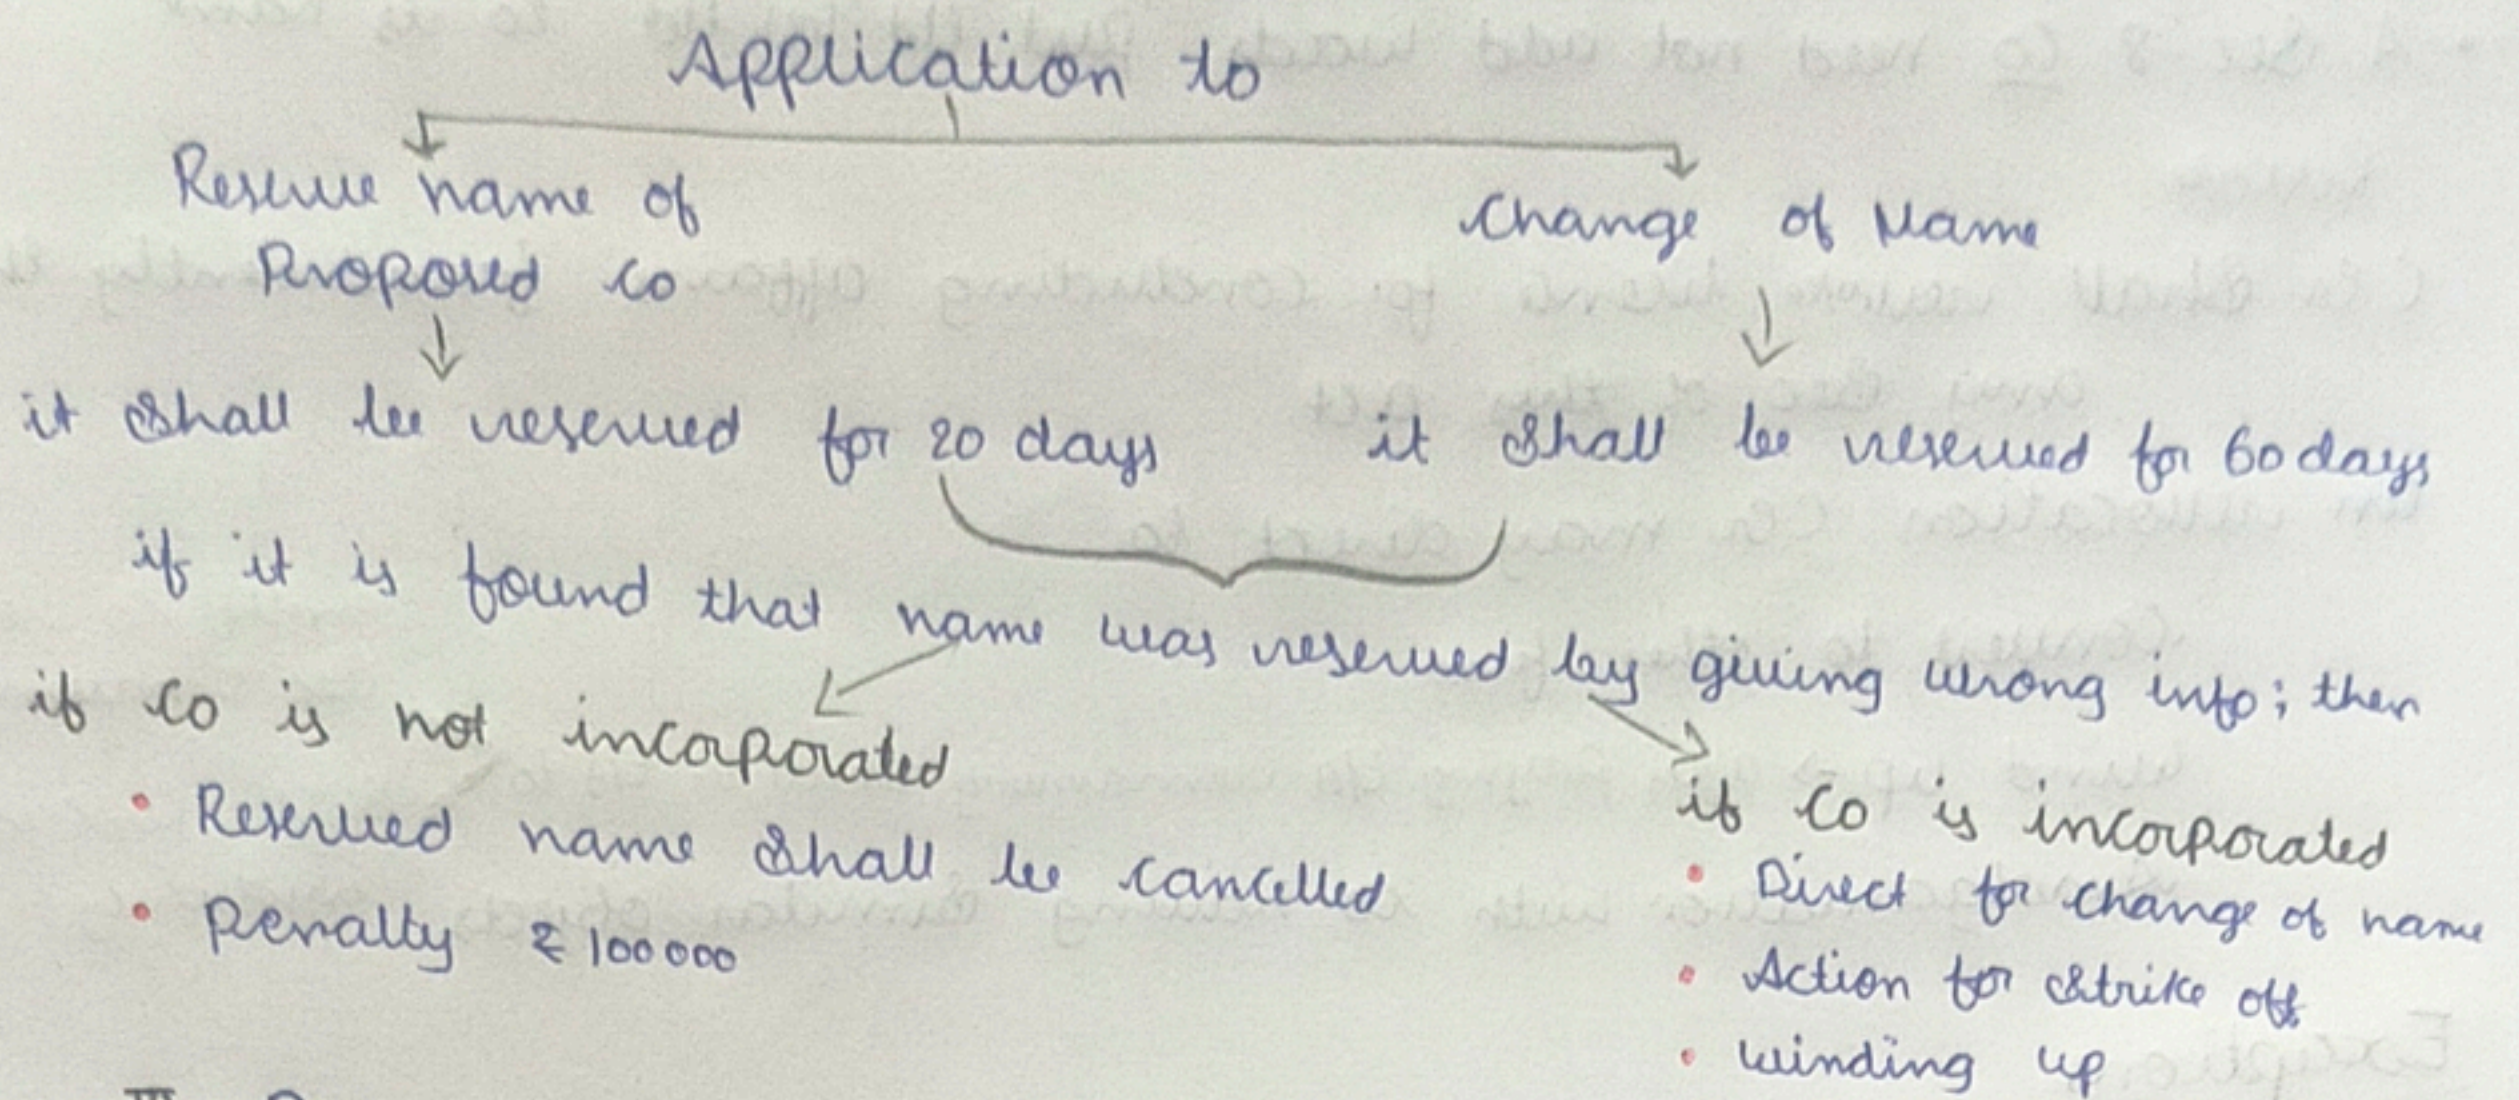 Application to
Reserve name of
Proposed co
Change of Name
it shall be reserved for 20 days
it shall be reserved for 60 days
if it is found that name was reserved by giving wrong info; then
if co is not incorporated
• Reserved name shall be cancelled
• Penalty ₹ 100000
if co is incorporated
• Direct for change of name
• Action for strike off
• winding up